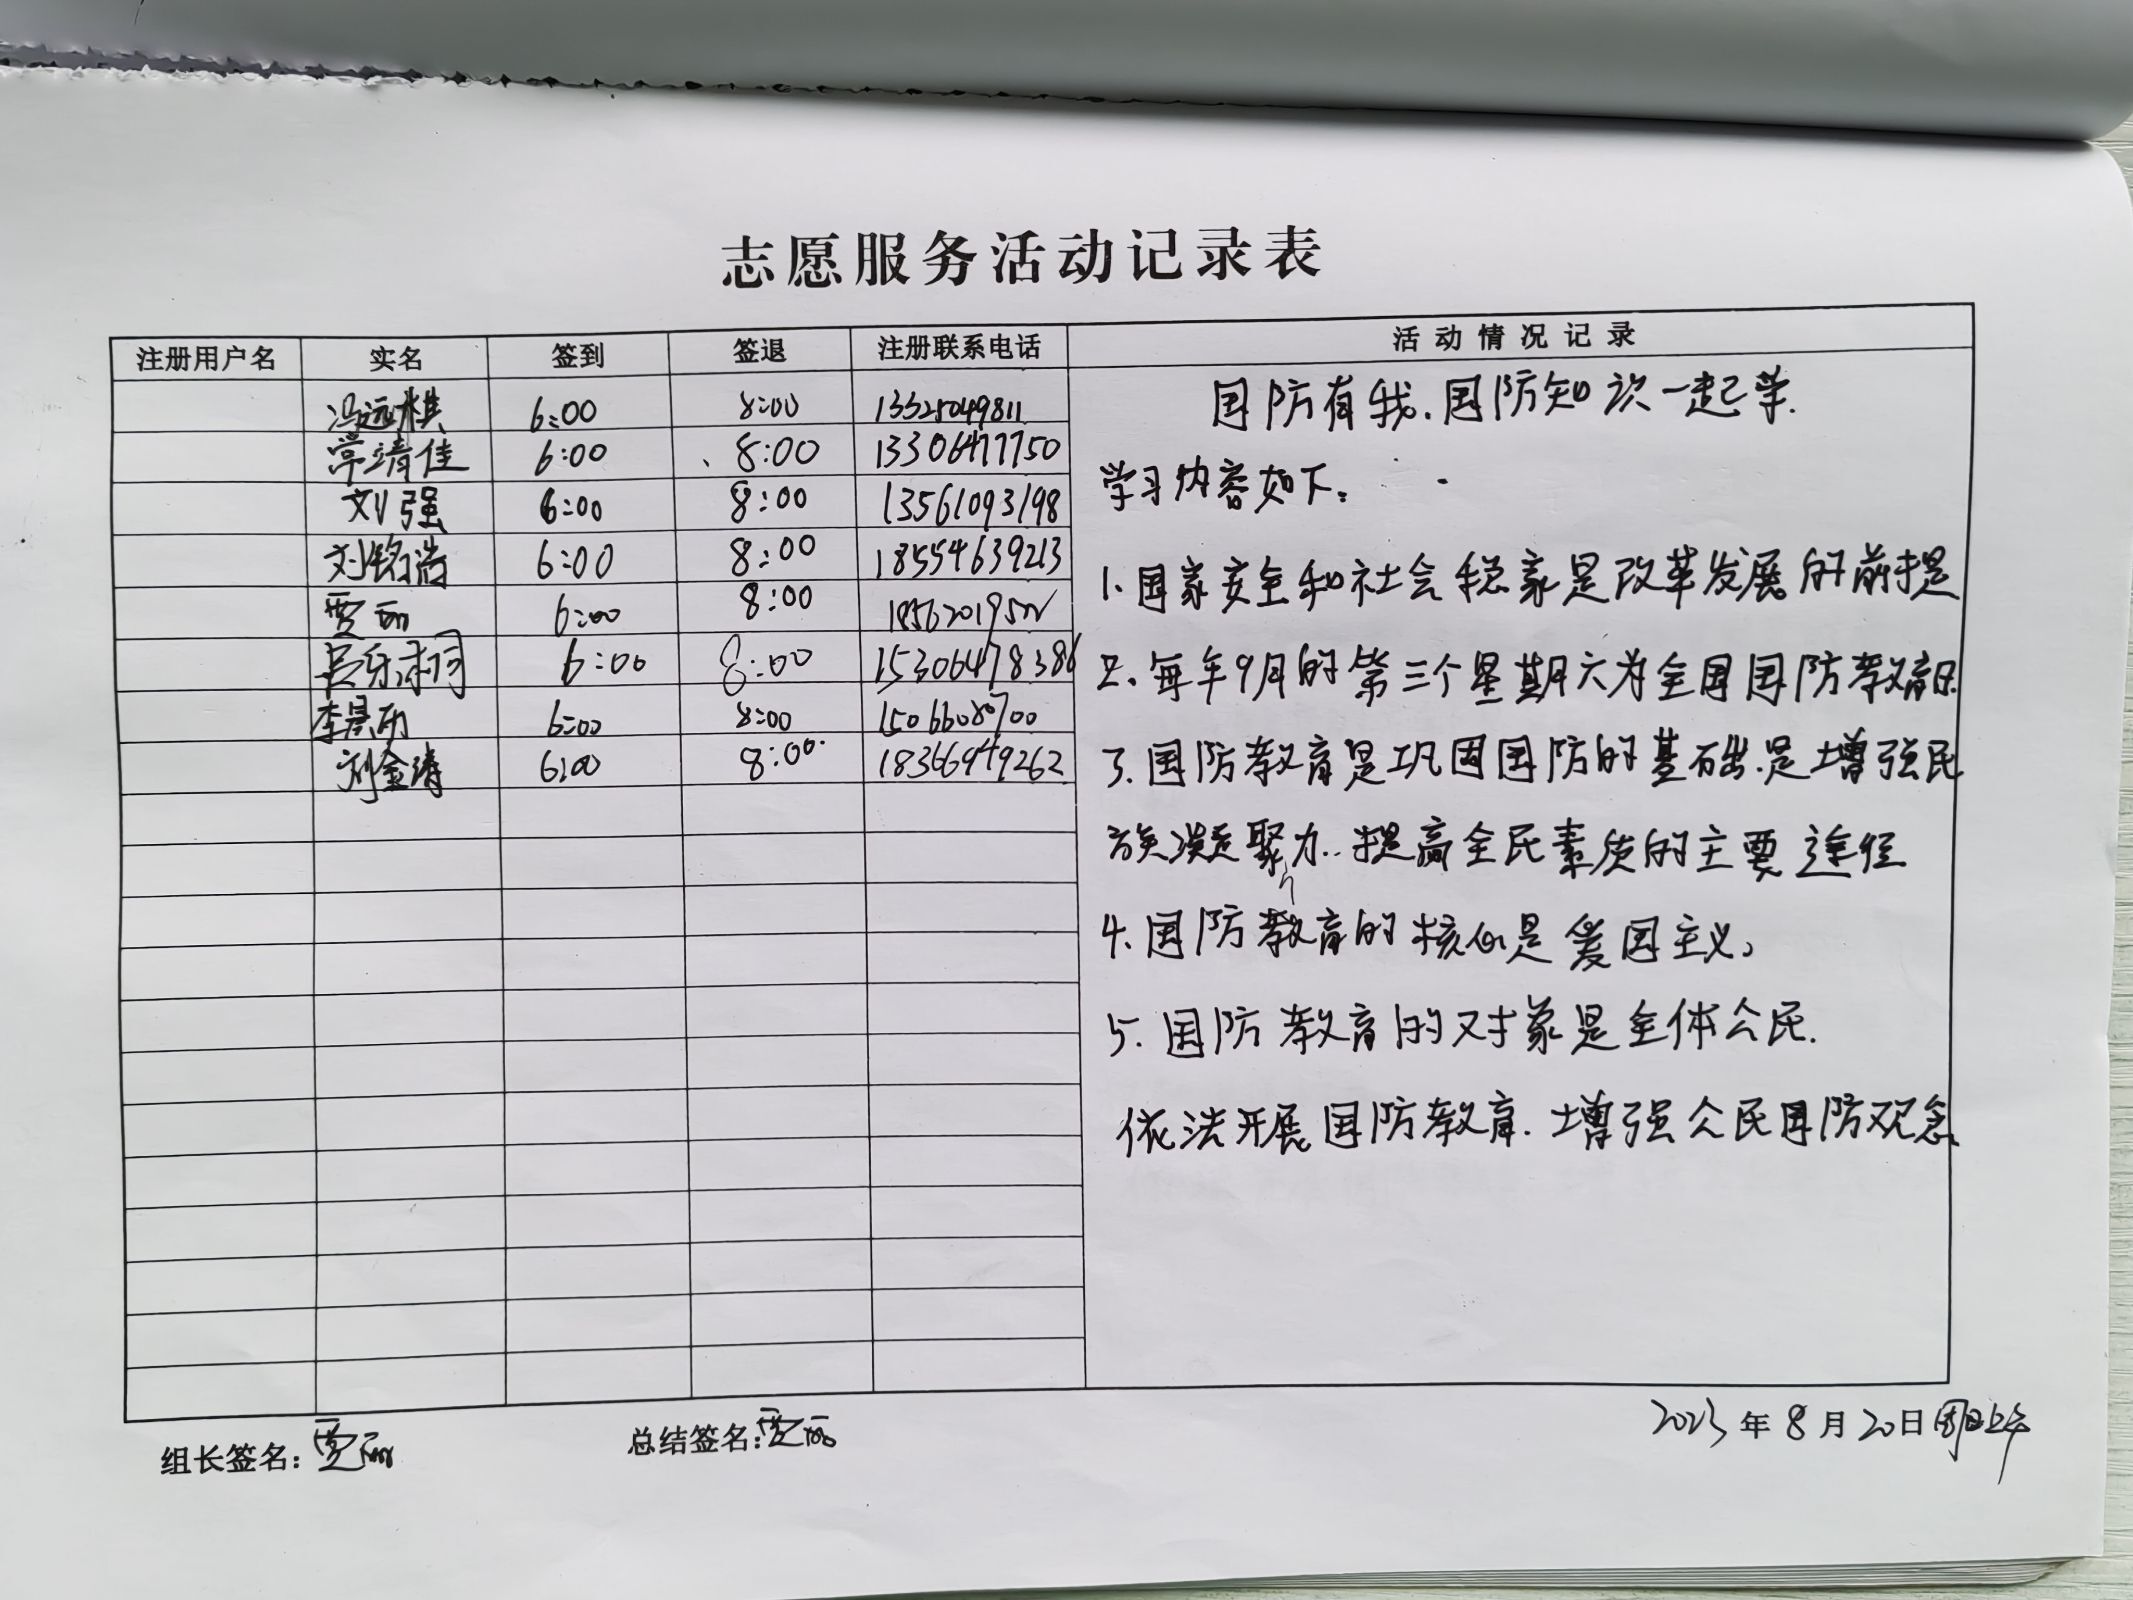 志愿服务活动记录表
注册用户名 实名 签到 签退 注册联系电话 活动情况记录
冯远棋 6:00 8:00 13325049811
常靖佳 6:00 8:00 13306477750
刘强 6:00 8:00 13561093198
刘铭浩 6:00 8:00 18554639213
贾丽 6:00 8:00
6:00 8:00 15306478386
李晨雨 6:00 8:00 15066080700
刘金涛 6:00 8:00 18366949262
国防有我.国防知识一起学.
学习内容如下:
1.国家安全和社会稳定是改革发展的前提
2、每年9月的第三个星期六为全国国防教育日.
3.国防教育是巩固国防的基础.是增强民
族凝聚力..提高全民素质的主要途径
4.国防教育的核心是爱国主义、
5.国防教育的对象是全体公民.
依法开展国防教育.增强公民国防观念
组长签名:贾丽 总结签名:贾丽 2023年8月20日周日上午